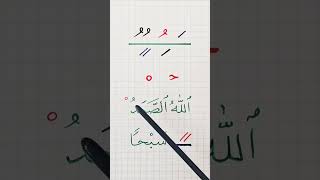 ٱللَّهُ ٱلصَّمَدُ
سَبْحًا